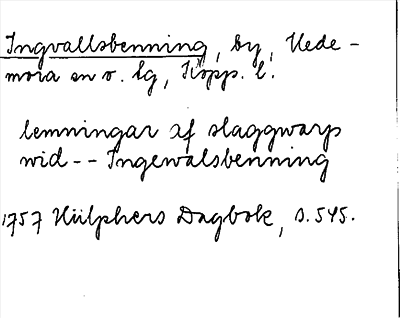 Ingvallsbenning, by, Hede-
mora sn o. lg, Kopp. l.
lemningar af slaggwarp
wid -- Ingewalsbenning
1757 Hülphers Dagbok, s. 545.